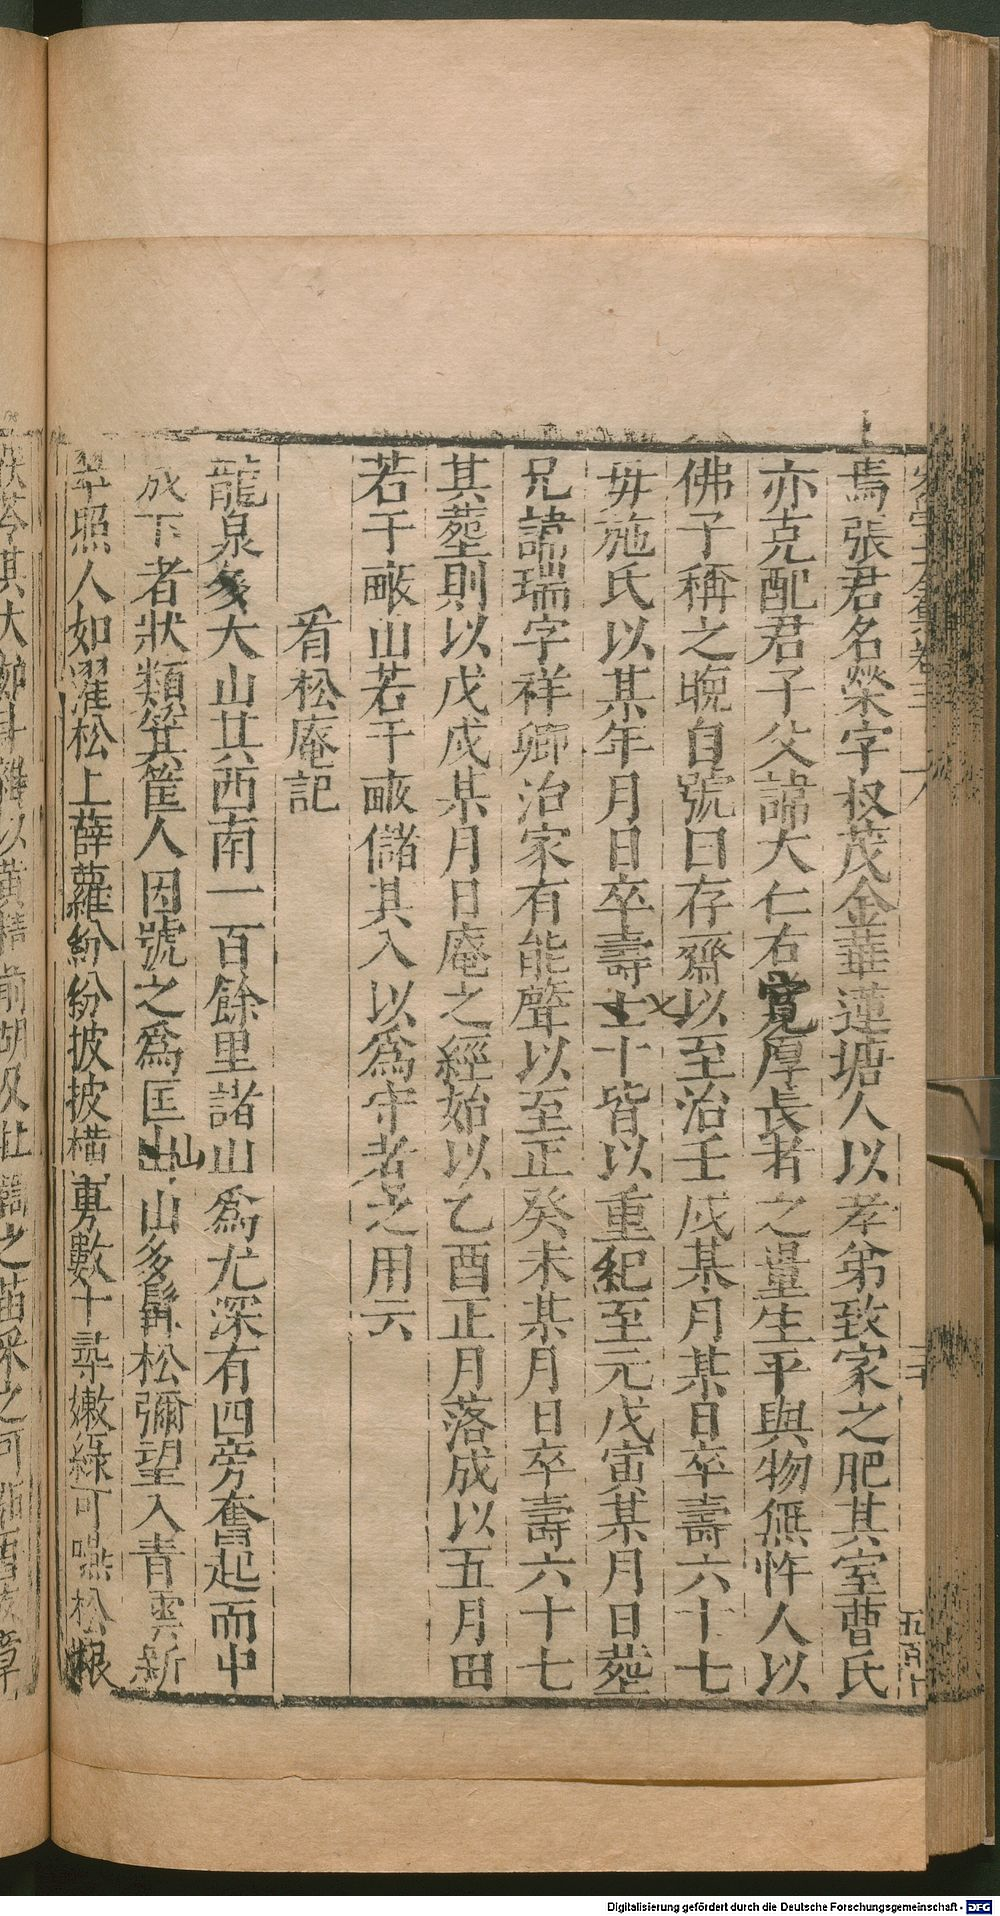 焉張君名榮字叔茂金華蓮塘人以孝弟致家之肥其室曹氏
亦克配君子父諱大仁右寬厚長者之量生平與物無忤人以
佛子稱之晚自號曰存齋以至治壬戌某月某日卒壽六十七
毋施氏以某年月日卒壽七十皆以重紀至元戊寅某月日葬
兄諱瑞字祥卿治家有能聲以至正癸未某月日卒壽六十七
其塟則以戊戌某月日庵之經始以乙酉正月落成以五月田
若干畞山若干畞儲其入以為守者之用云
看松庵記
龍泉多大山其西南一百餘里諸山為尤深有四旁奮起而中
成下者狀類箕筐人因號之為匡山山多髯松彌望入青雲新
翠照人如濯松上薜蘿紛紛披披橫敷數十尋嫩綠可咽松根
Digitalisierung gefördert durch die Deutsche Forschungsgemeinschaft - DFG